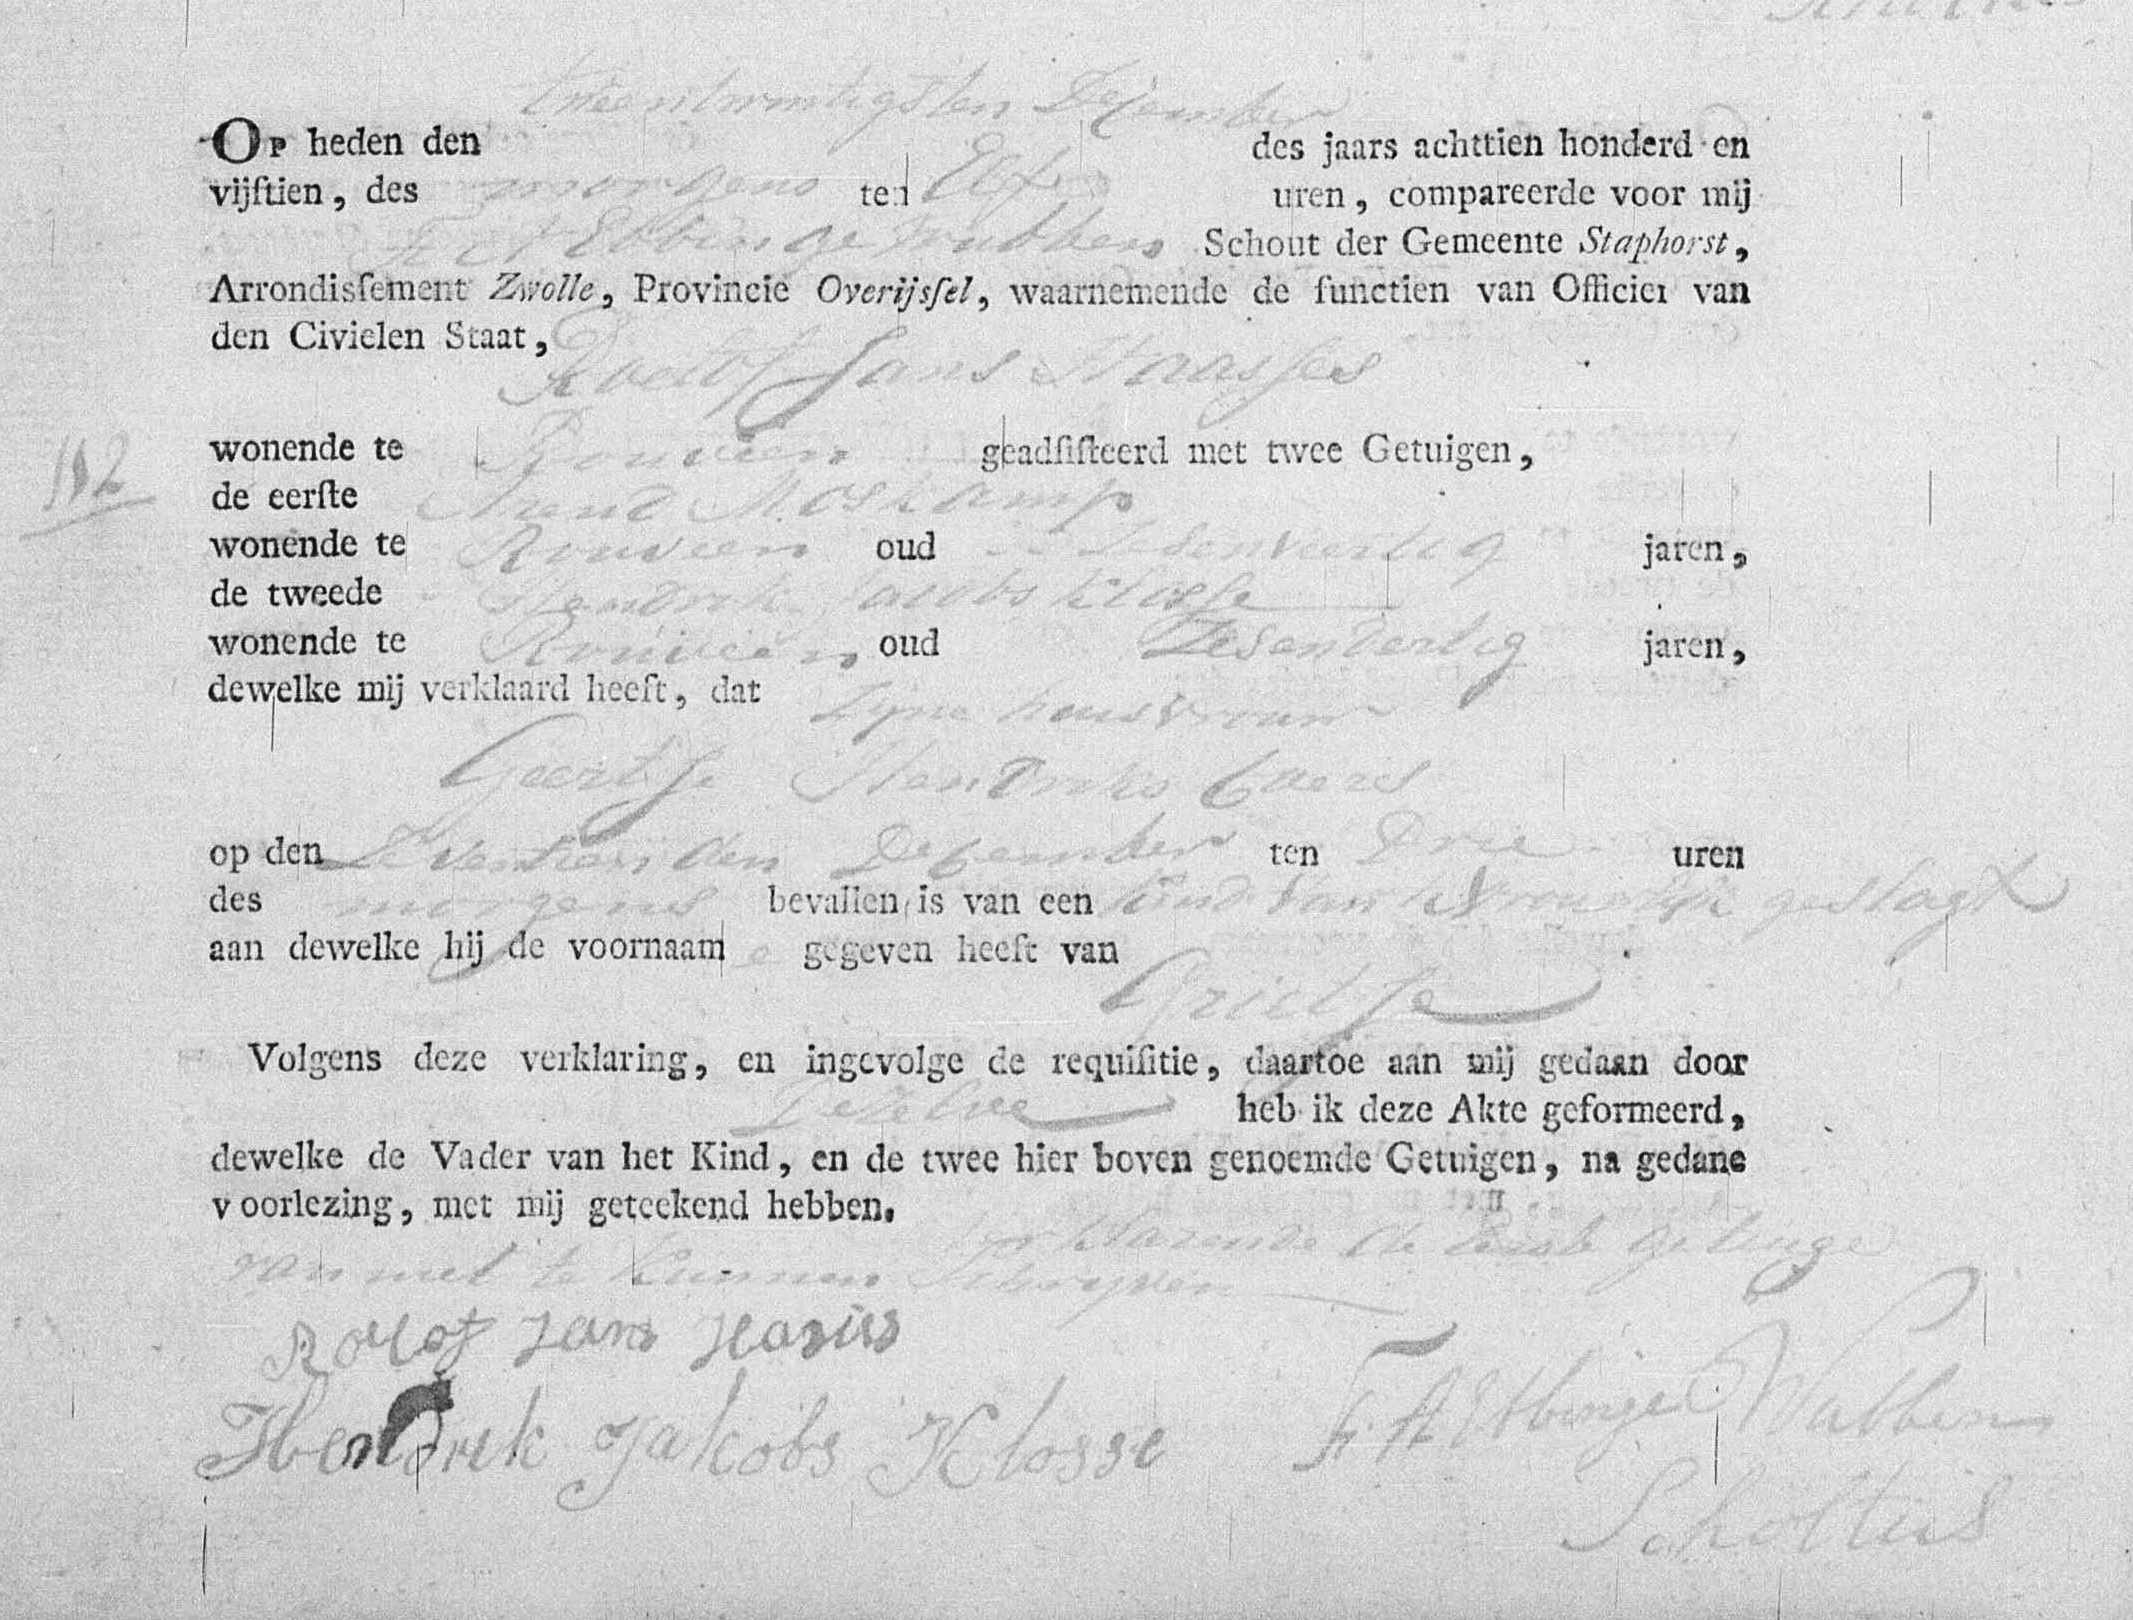 tweentwintigsten December
Op heden den des jaars achttien honderd en
vijftien, des morgens ten Elf uren, compareerde voor mij
F A Ebbinge Wubben Schout der Gemeente Staphorst,
Arrondissement Zwolle, Provincie Overijssel, waarnemende de functien van Officier van
den Civielen Staat,
Roelof Jans Haasjes
112
wonende te Rouveen geadsisteerd met twee Getuigen,
de eerste Arend Moskamp
wonende te Rouveen oud Zesenveertig jaren,
de tweede Hendrik Jacobs Klosse
wonende te Rouveen oud Zesendertig jaren,
dewelke mij verklaard heeft, dat Zyne huisvrouw
Geertje Hendriks
op den Zeventienden December ten Drie uren
des morgens bevallen is van een kind van t Vrouwlijk geslagt
aan dewelke hij de voornaam gegeven heeft van
Grietje
Volgens deze verklaring, en ingevolge de requisitie, daartoe aan mij gedaan door
Dezelve heb ik deze Akte geformeerd,
dewelke de Vader van het Kind, en de twee hier boven genoemde Getuigen, na gedane
voorlezing, met mij geteekend hebben.
verklarende de eerste getuige
van niet te kunnen Schryven
Rolof Jans
Hendrik Jakobs Klosse F. A Ebbinge Wubben
Scholtus